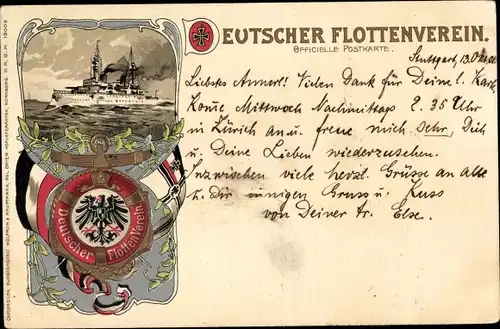 DEUTSCHER FLOTTENVEREIN.
OFFICIELLE POSTKARTE.
Stuttgart,
Liebstes Annerl! Vielen Dank für Deine l. Karte
Kome Mittwoch Nachmittag 2.35 Uhr
in Zürich an u. freue mich sehr, Dich
u. Deine Lieben wiederzusehen.
Inzwischen viele herzl. Grüsse an alle
u. Dir innigen Gruss u. Kuss
von Deiner tr. Else.
Deutscher
Flotten Verein